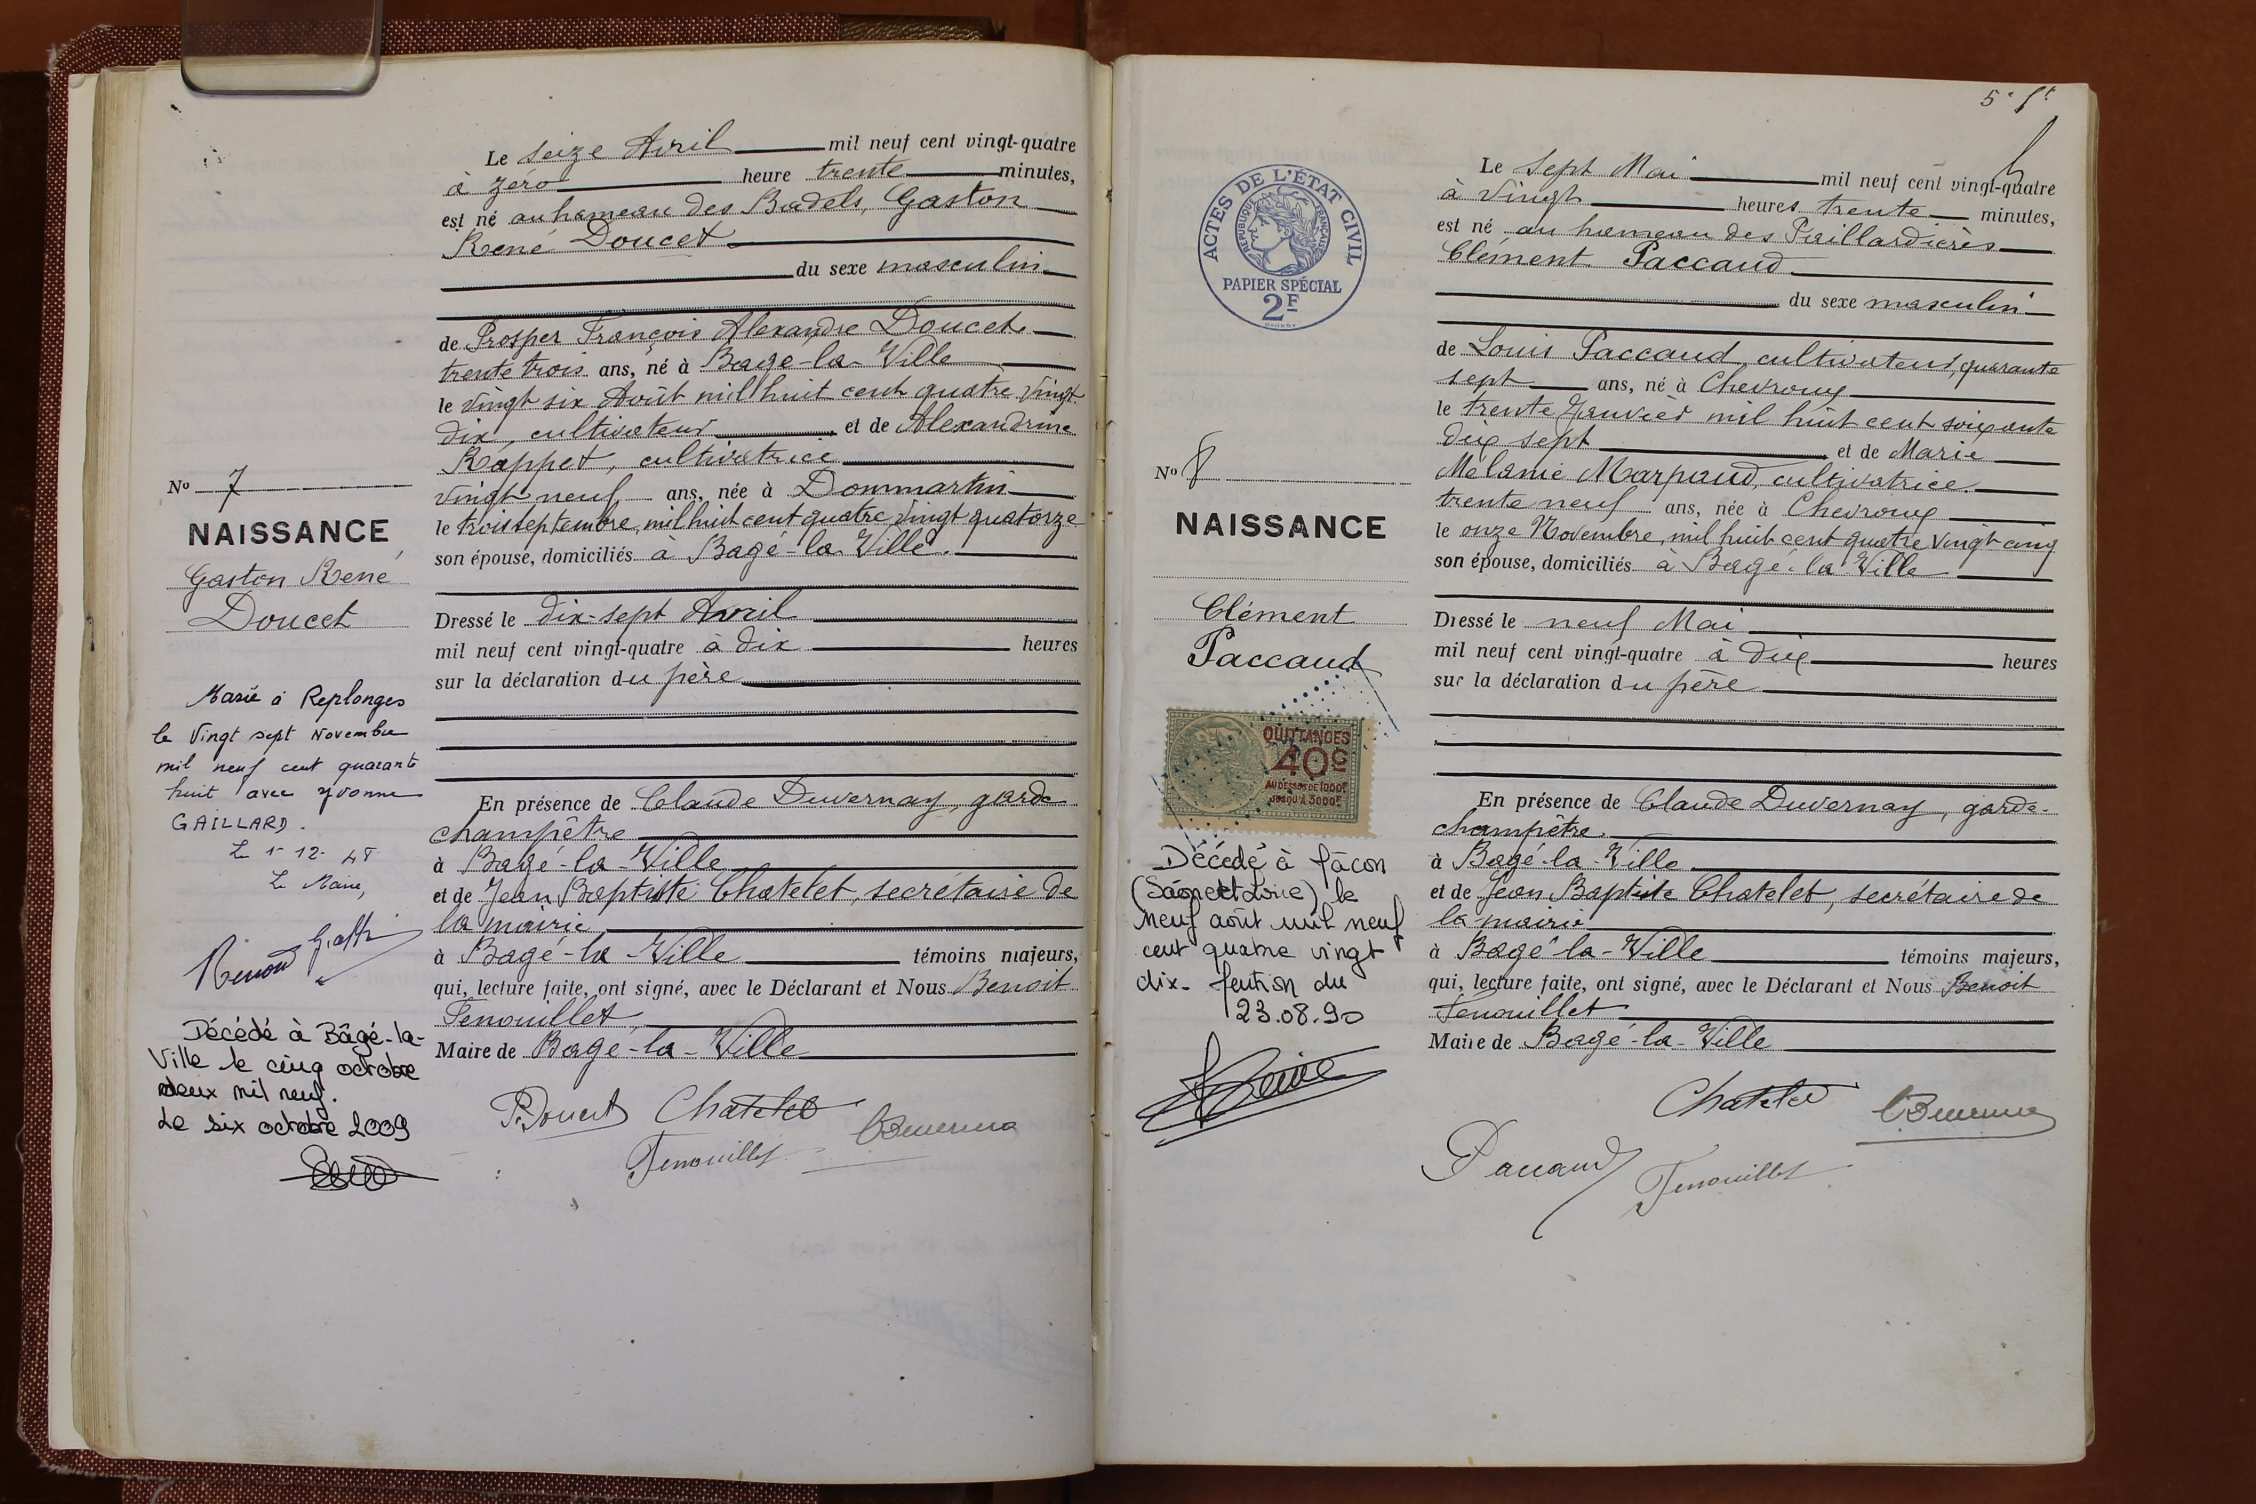 Le seize Avril mil neuf cent vingt-quatre
à zéro heure trente minutes,
est né au hameau des Badels, Gaston
René Doucet
du sexe masculin
de Prosper François Alexandre Doucet
trente trois ans, né à Bagé-la-Ville
le vingt six Août mil huit cent quatre vingt
dix, cultivateur et de Alexandrine
Rappet, cultivatrice
vingt neuf ans, née à Dommartin
le trois septembre, mil huit cent quatre vingt quatorze
son épouse, domiciliés à Bagé-la-Ville.
Dressé le dix-sept Avril
mil neuf cent vingt-quatre à dix heures
sur la déclaration du père
En présence de Claude Duvernay, garde
champêtre
à Bagé-la-Ville
et de Jean Baptiste Chatelet, secrétaire de
la mairie
à Bagé-la-Ville témoins majeurs,
qui, lecture faite, ont signé, avec le Déclarant et Nous Benoit
Fenouillet
Maire de Bagé-la-Ville
P. Doucet Chatelet
Fenouillet
No 7
NAISSANCE
Gaston René
Doucet
Marié à Replonges
le vingt sept Novembre
mil neuf cent quarante
huit avec Yvonne
GAILLARD.
Le 1-12-48
Le Maire,
Décédé à Bâgé-la-
Ville le cinq octobre
deux mil neuf.
Le six octobre 2009
5e ft
Le sept Mai mil neuf cent vingt-quatre
à vingt heures trente minutes,
est né au hameau des Paillardières
Clément Paccaud
du sexe masculin
de Louis Paccaud, cultivateur, quarante
sept ans, né à Chevroux
le trente Janvier mil huit cent soixante
dix sept et de Marie
Mélanie Marpaud, cultivatrice.
trente neuf ans, née à Chevroux
le onze Novembre, mil huit cent quatre vingt cinq
son épouse, domiciliés à Bagé-la-Ville
Dressé le neuf Mai
mil neuf cent vingt-quatre à dix heures
sur la déclaration du père
En présence de Claude Duvernay, garde-
champêtre.
à Bagé-la-Ville
et de Jean Baptiste Chatelet, secrétaire de
la mairie
à Bagé-la-Ville témoins majeurs,
qui, lecture faite, ont signé, avec le Déclarant et Nous Benoit
Fenouillet
Maire de Bagé-la-Ville
Chatelet
Paccaud Fenouillet
ACTES DE L'ÉTAT CIVIL
RÉPUBLIQUE FRANÇAISE
PAPIER SPÉCIAL
2F
No 8
NAISSANCE
Clément
Paccaud
QUITTANCES
40c
AU DESSUS DE 1000F
JUSQU'À 3000F
Décédé à Mâcon
(Saône et Loire) le
neuf août mil neuf
cent quatre vingt
dix. Mention du
23.08.90